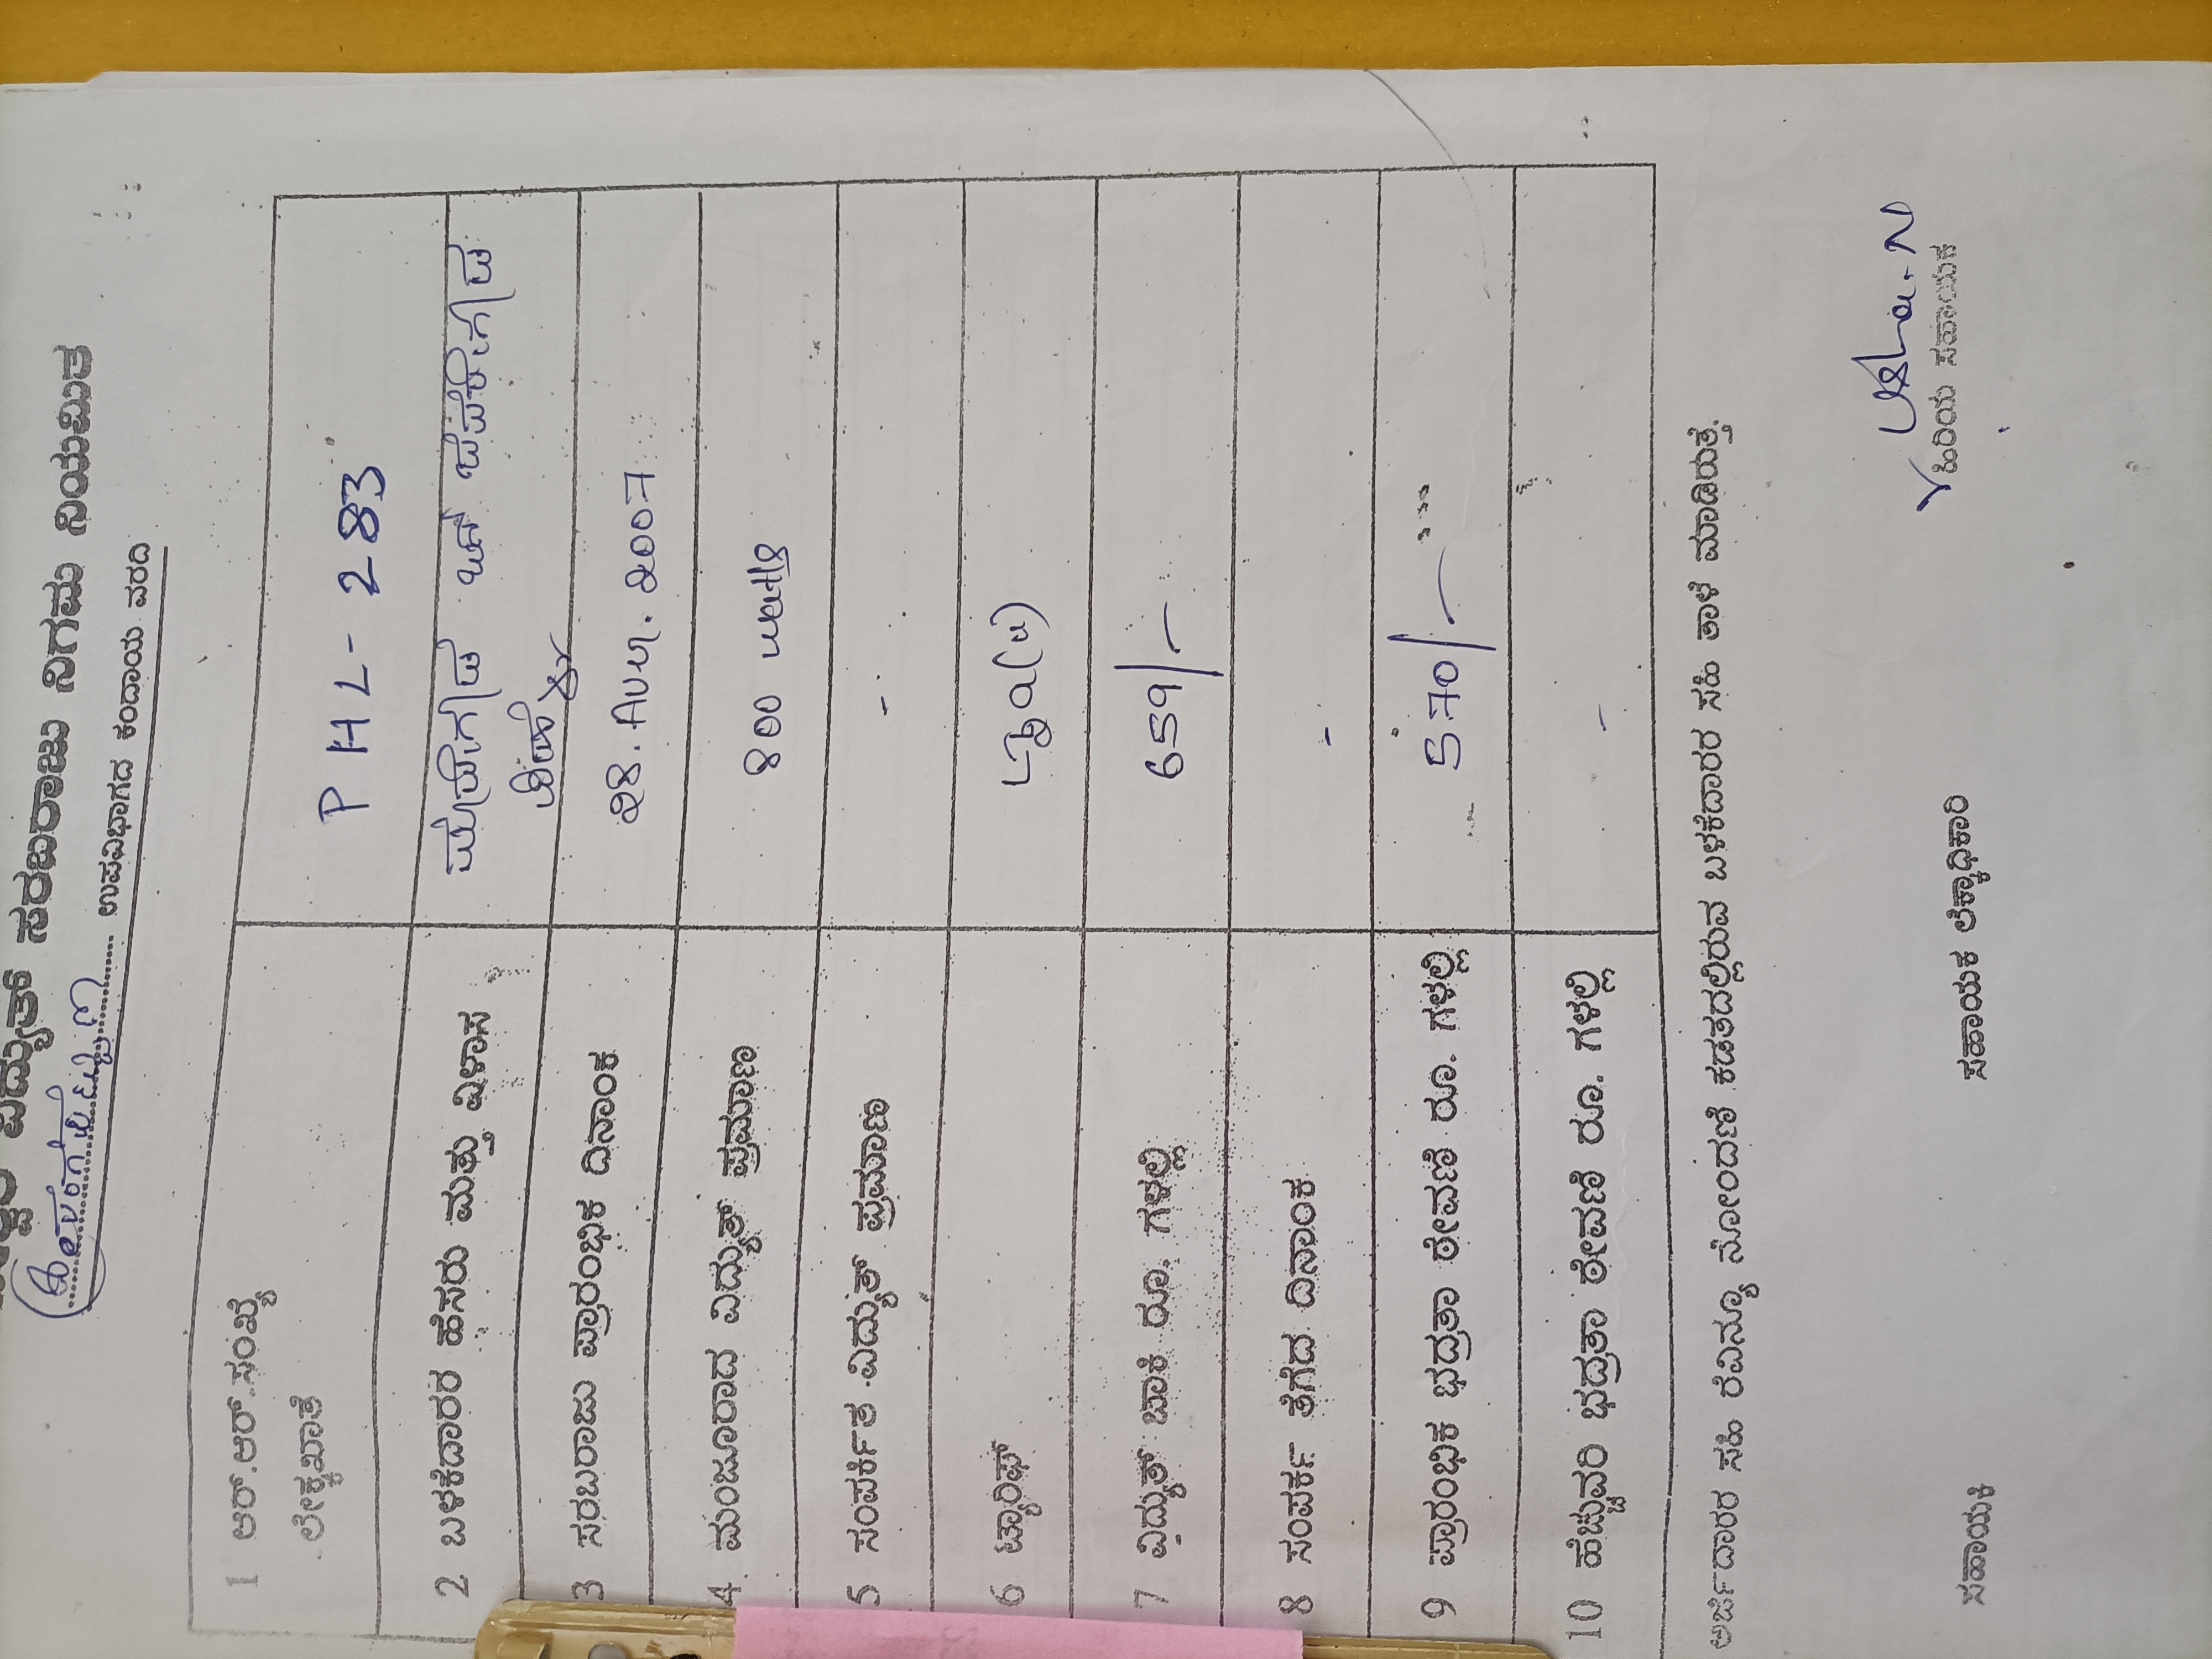 ವಿದ್ಯುತ್ ಸರಬರಾಜು ನಿಗಮ ನಿಯಮಿತ
ಉಪವಿಭಾಗದ ಕಂದಾಯ ವರದಿ
1 ಆರ್.ಆರ್.ಸಂಖ್ಯೆ PHL-283
ಲೇಕ್ಕಖಾತೆ
2 ಬಳಕೆದಾರರ ಹೆಸರು ಮತ್ತು ವಿಳಾಸ
3 ಸರಬರಾಜು ಪ್ರಾರಂಭಿಕ ದಿನಾಂಕ 28.Aug.2007
4 ಮಂಜೂರಾದ ವಿದ್ಯುತ್ ಪ್ರಮಾಣ 800
5 ಸಂಪರ್ಕಿತ ವಿದ್ಯುತ್ ಪ್ರಮಾಣ -
6 ಟ್ಯಾರಿಫ್
7 ವಿದ್ಯುತ್ ಬಾಕಿ ರೂ. ಗಳಲ್ಲಿ 659/-
8 ಸಂಪರ್ಕ ತೆಗೆದ ದಿನಾಂಕ -
9 ಪ್ರಾರಂಭಿಕ ಭದ್ರತಾ ಠೇವಣಿ ರೂ. ಗಳಲ್ಲಿ 570/-
10 ಹೆಚ್ಚುವರಿ ಭದ್ರತಾ ಠೇವಣಿ ರೂ. ಗಳಲ್ಲಿ -
ಅರ್ಜಿದಾರರ ಸಹಿ ರೆವಿನ್ಯೂ ನೋಂದಣಿ ಕಡತದಲ್ಲಿರುವ ಬಳಕೆದಾರರ ಸಹಿ ತಾಳೆ ಮಾಡಿರುತ್ತೆ.
ಸಹಾಯಕಿ ಸಹಾಯಕ ಲೆಕ್ಕಾಧಿಕಾರಿ ಹಿರಿಯ ಸಹಾಯಕ